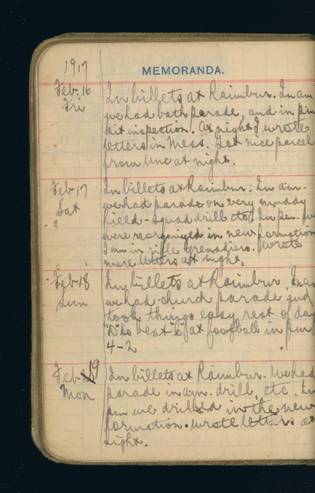 1917
MEMORANDA.
Feb. 16
Fri
In billets at Raimbur. In am
we had bath parade, and in pm
kit inspection. At night I wrote
letters in Mess. Got nice parcel
from Unc at night.
Feb 17
Sat
In billets at Raimbur. In am.
we had parade on very muddy
field - squad drill etc. In pm. we
were reorganized in new formation
I am in rifle grenadiers. Wrote
more letters at night.
Feb 18
Sun
In billets at Raimbur. In am
we had church parade and
took things easy rest of day
D Co beat at football in pm
4-2
Feb 19
Mon
In billets at Raimbur. We had
parade in am. drill, etc. In
pm we drilled in the new
formation. Wrote letters at
night.